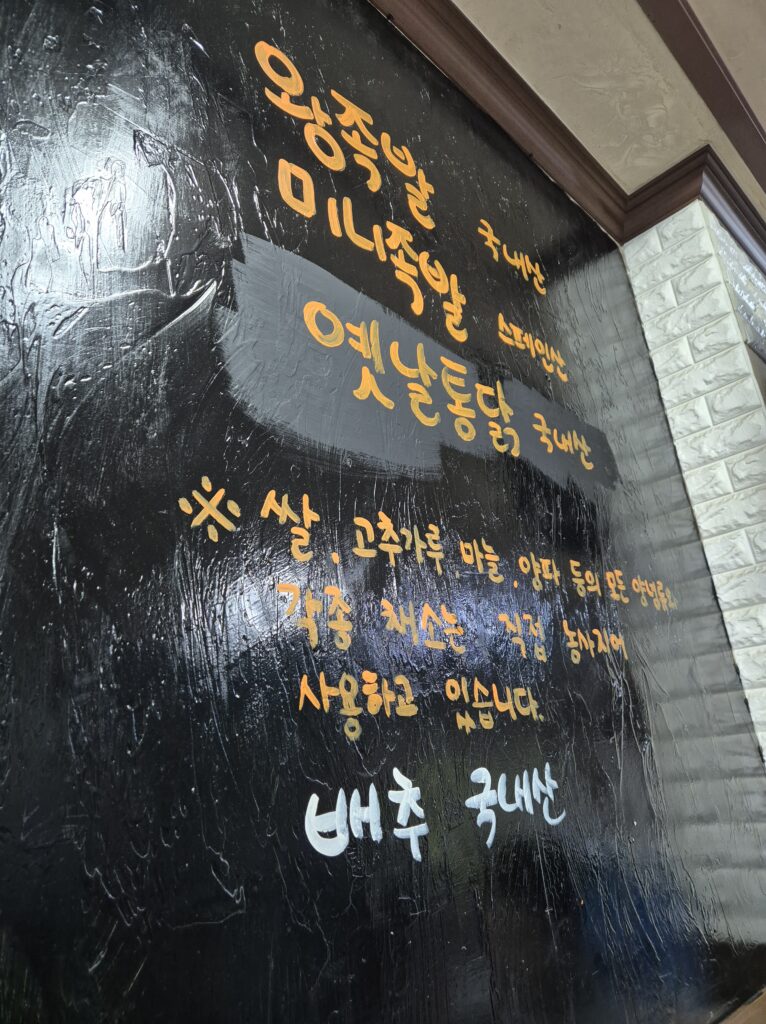 왕족발 국내산
미니족발 스페인산
옛날통닭 국내산
※ 쌀, 고추가루, 마늘, 양파 등의 모든 양념류와
각종 채소는 직접 농사지어
사용하고 있습니다.
배추 국내산